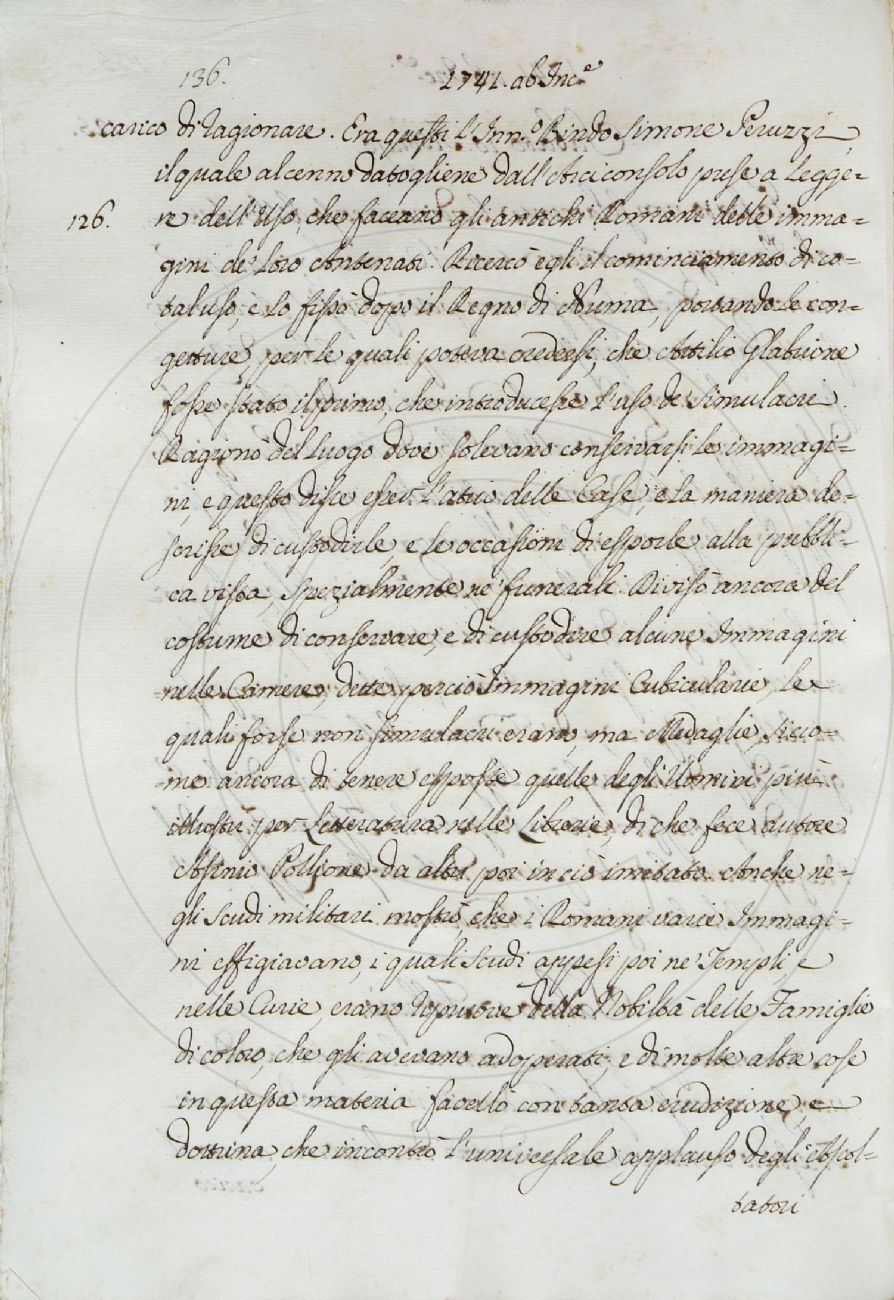 136. 1741. ab Inc.e
carico di ragionare. Era questi l'Inn.o Bindo Simone Peruzzi,
il quale al cenno datogliene dall'Arciconsolo prese a Legge-
126. re dell'Uso, che faceano gli antichi Romani delle imma-
gini de' loro Antenati. Ricercò egli il cominciamento di co-
tal uso, e lo fissò dopo il Regno di Numa, portando le con-
getture, per le quali poteva credersi, che Attilio Glabrione
fosse stato il primo, che introducesse l'uso de' Simulacri.
Ragionò del luogo dove solevano conservarsi le immagi-
ni, e questo disse esser l'atrio delle Case, e la maniera de-
scrisse di custodirle, e le occasioni di esporle alla pubbli-
ca vista, spezialmente ne' funerali. Divisò ancora del
costume di conservare, e di custodire alcune Immagini
nelle Camere, dette perciò Immagini Cubicularie, le
quali forse non simulacri erano, ma Medaglie, sicco-
me ancora di tenere esposte quelle degli Uomini più
illustri per Letteratura nelle Librerie, di che fece autore
Asinio Pollione da altri poi in ciò imitato. Anche ne-
gli scudi militari mostrò che i Romani varie Immagi-
ni effigiavano, i quali scudi appesi poi ne' Templi, e
nelle Curie, erano riprove della Nobiltà delle Famiglie
di coloro, che gli avevano adoperati; e di molte altre cose
in questa materia favellò con tanta erudizione, e
dottrina, che incontrò l'universale applauso degli Ascol-
tatori